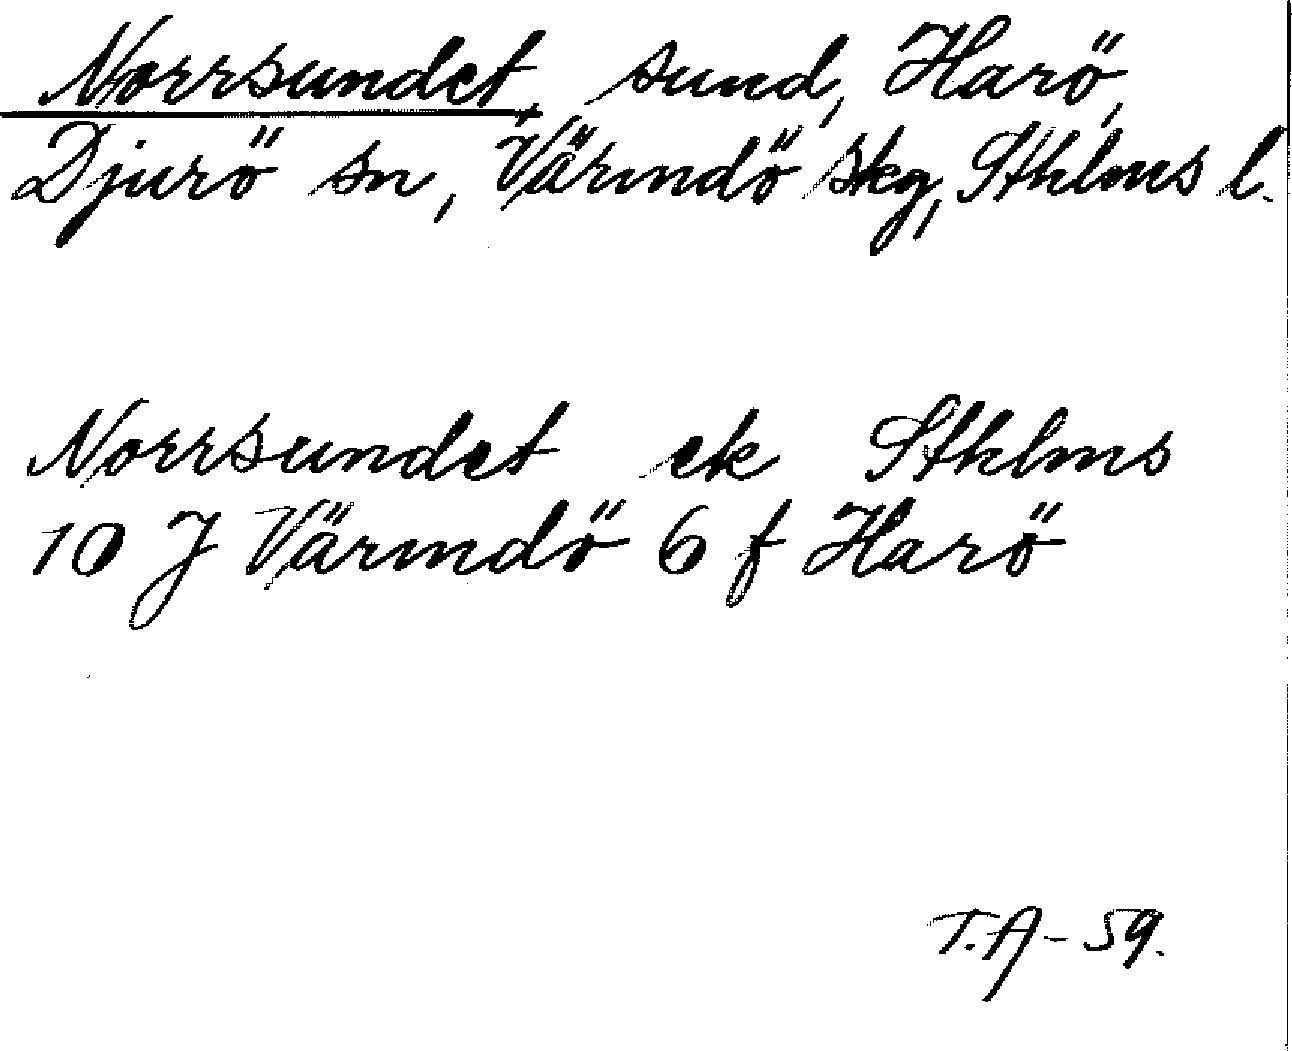 Norrsundet, sund, Harö,
Djurö sn, Värmdö skg, Sthlms l.
Norrsundet ek Sthlms
10 J Värmdö 6 f Harö
T.A - 59.